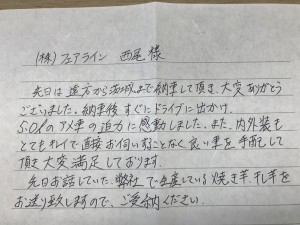 (株)フェアライン 西尾 様
先日は遠方から茨城まで納車して頂き、大変ありがとう
ございました。納車後すぐにドライブに出かけ、
5.0ℓのアメ車の迫力に感動しました。また、内外装も
とてもキレイで直接お伺いすることなく良い車を手配して
頂き大変満足しております。
先日お話していた、弊社で生産している焼き芋、干し芋を
お送り致しますので、ご笑納ください。